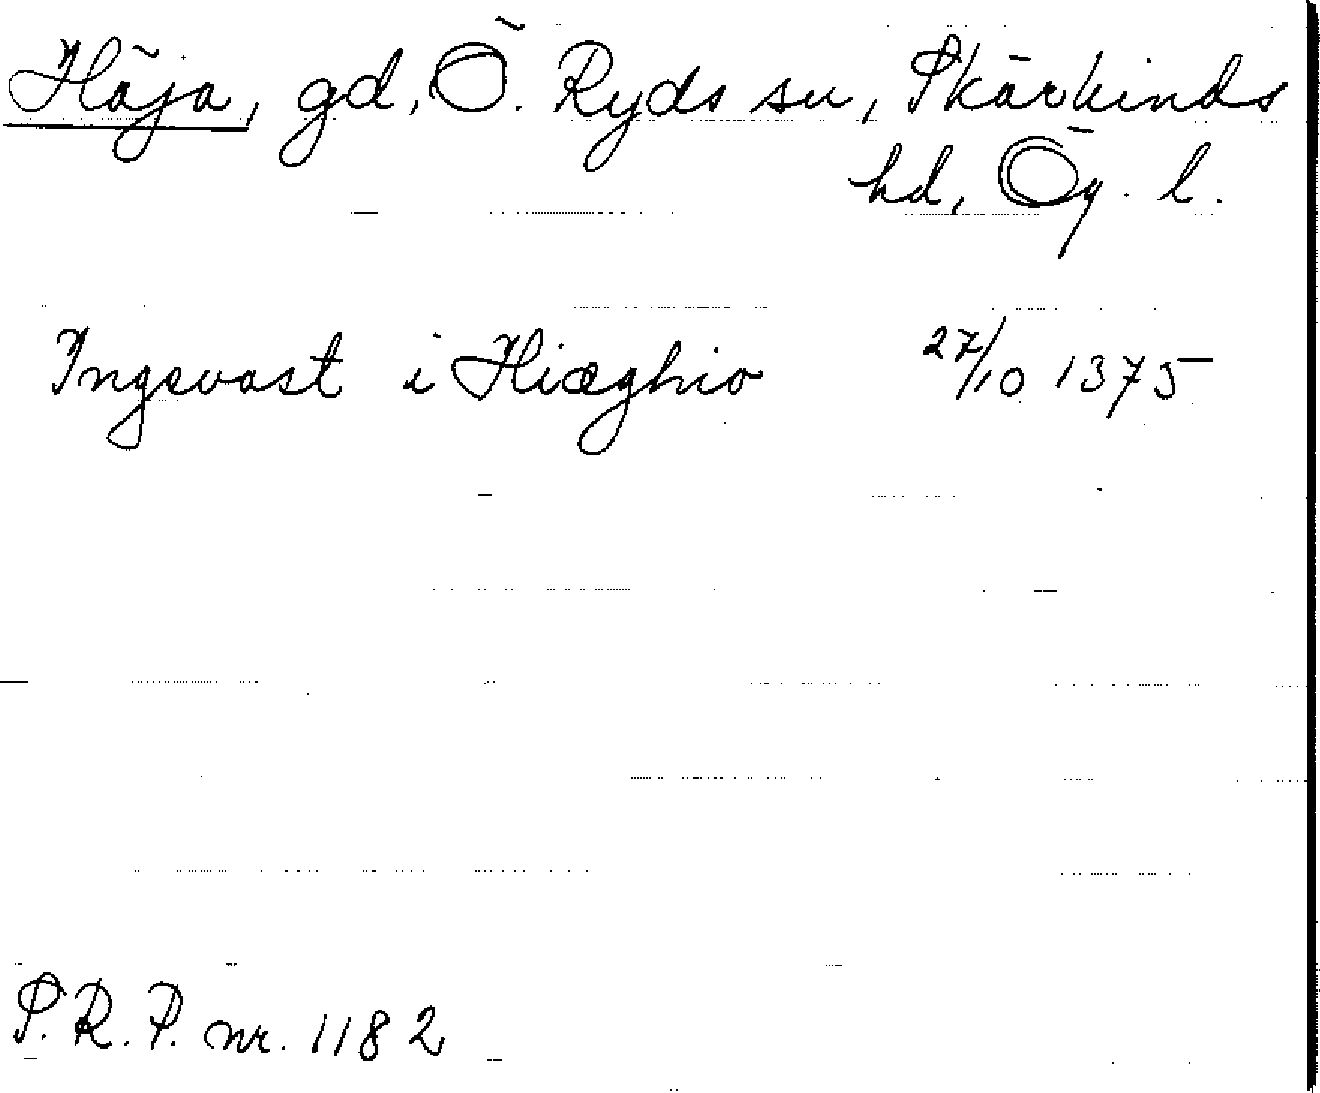 Häja, gd, Ö. Ryds sn, Skärkinds
hd, Ög. l.
Ingevast i Hiæghio 27/10 1375
S.R.P. nr. 1182